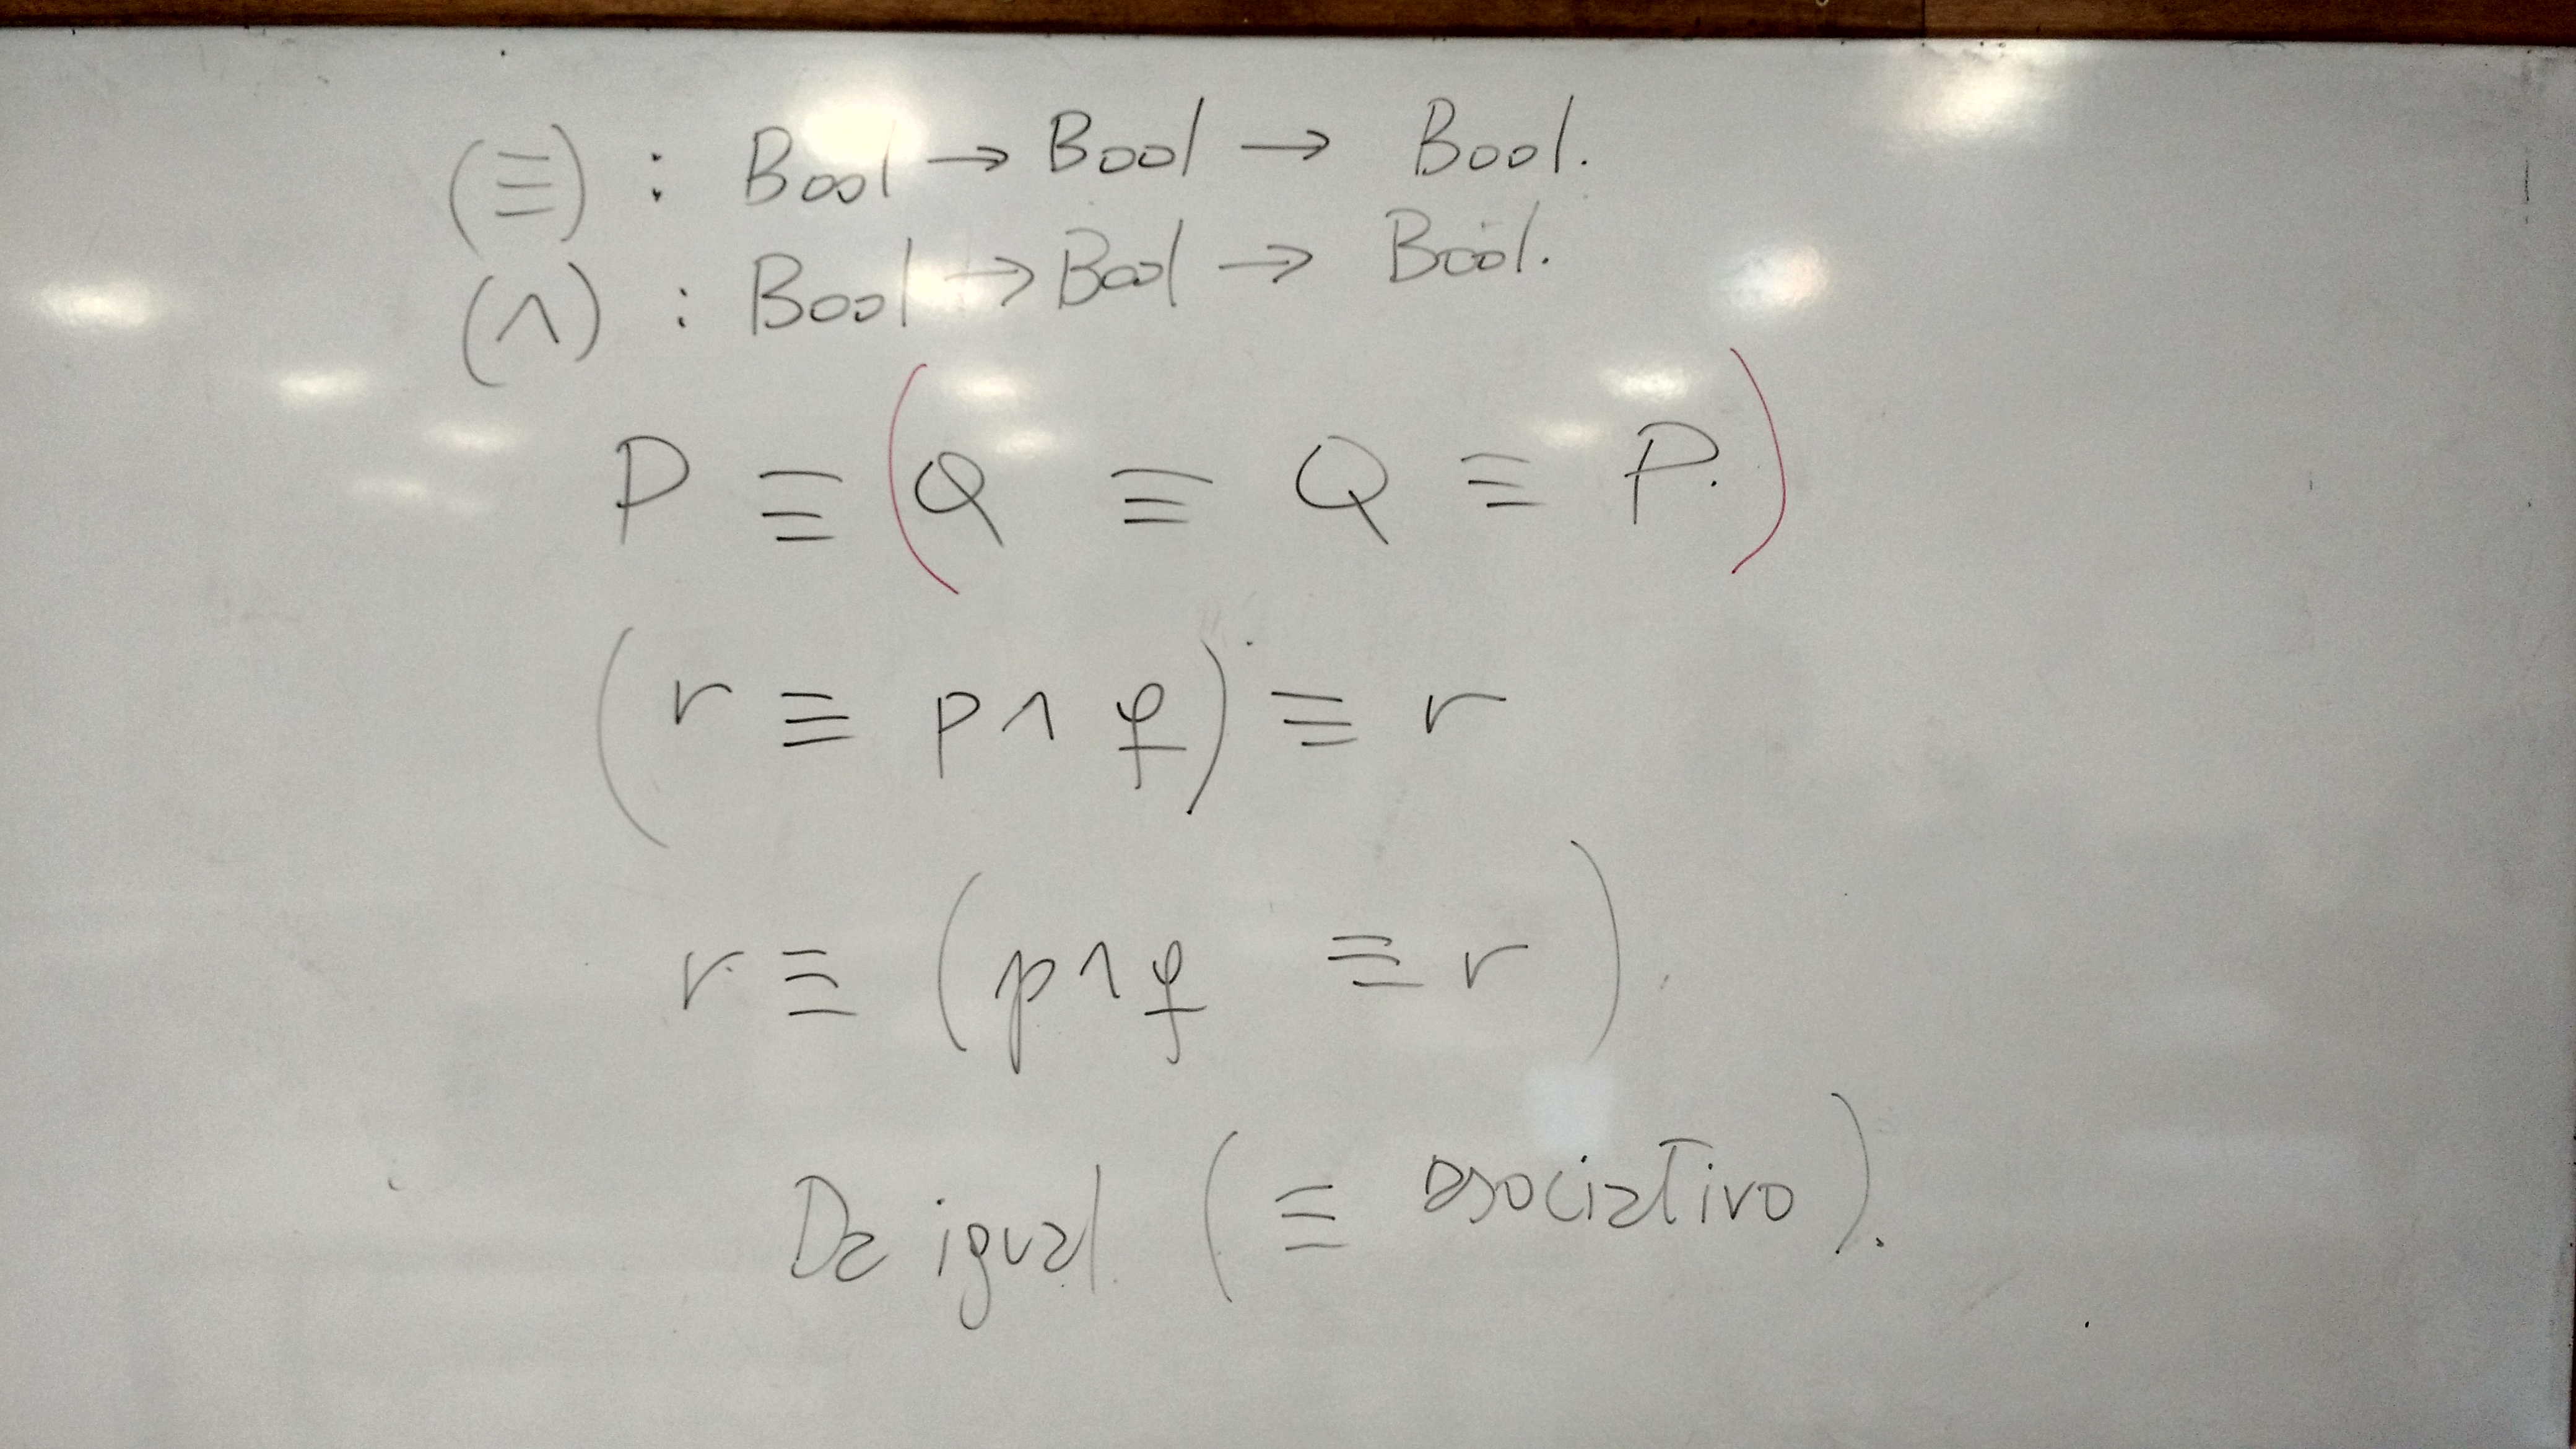 (≡) : Bool → Bool → Bool.
(∧) : Bool → Bool → Bool.
P ≡ (Q ≡ Q ≡ P.)
(r ≡ p ∧ q) ≡ r
r ≡ (p ∧ q ≡ r).
Da igual (≡ asociativo).